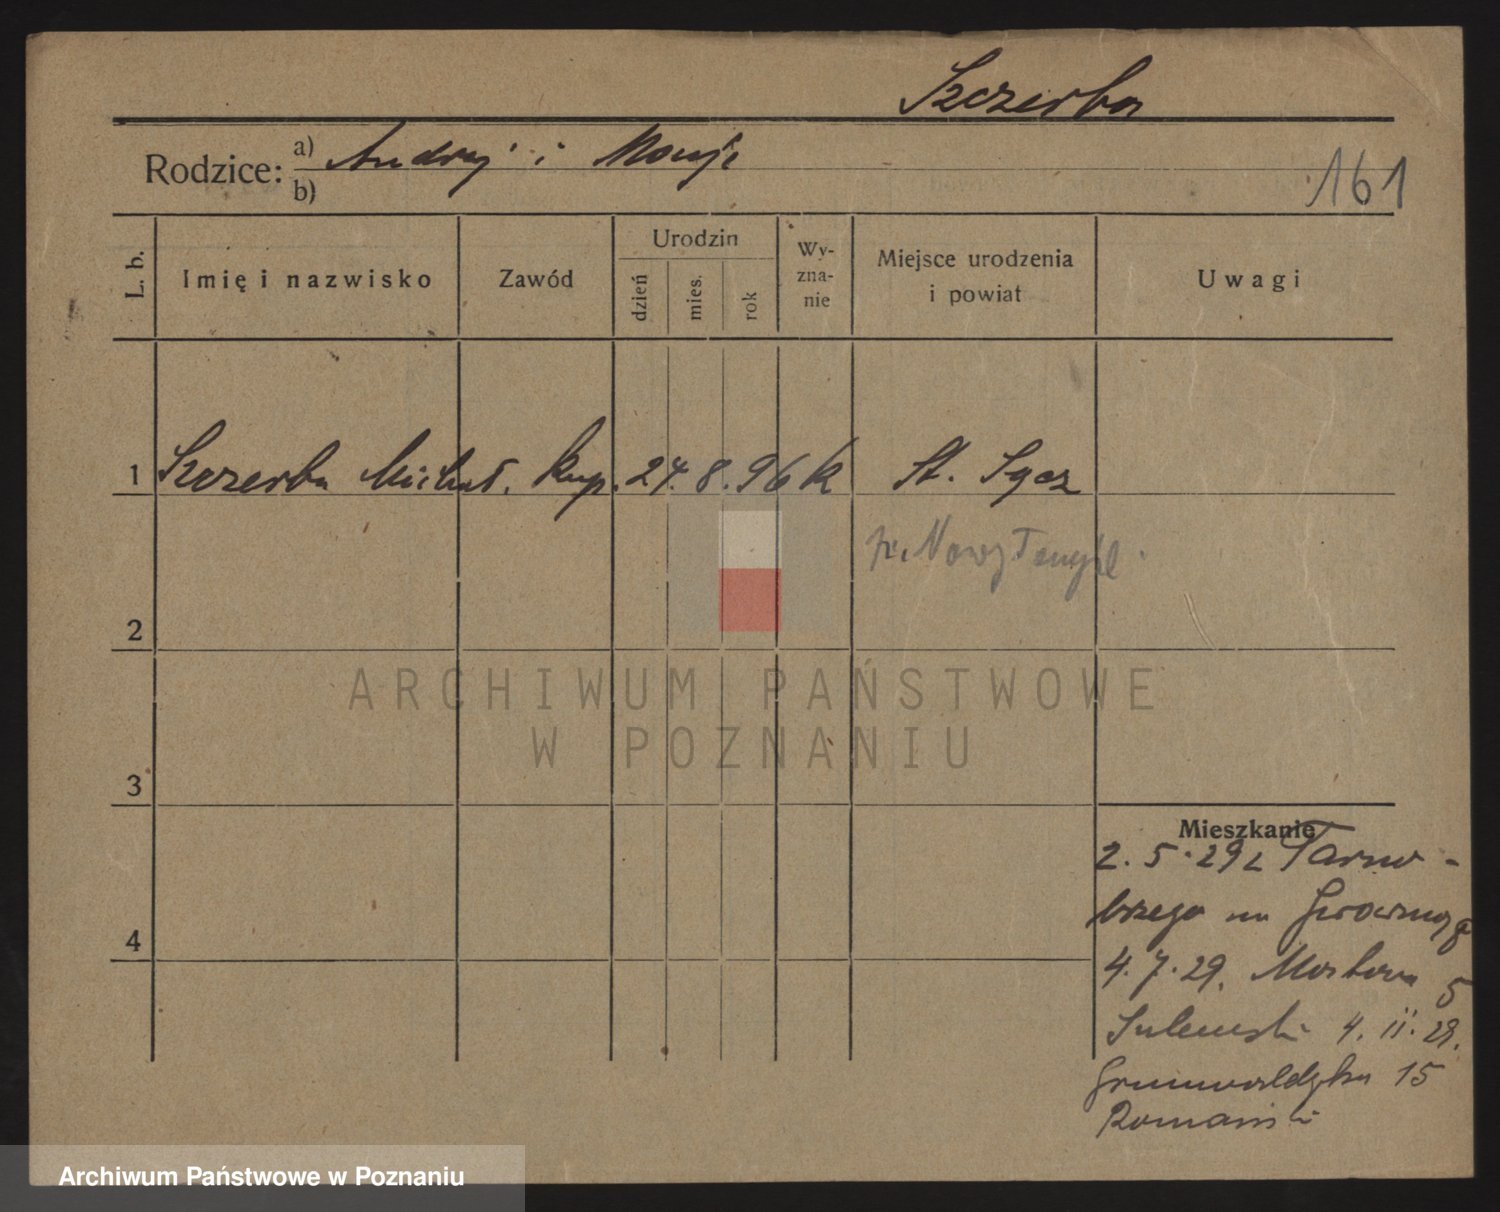 Szczerba
Rodzice: a) Andrzej i Maryja
b)
161
L. b.
Imię i nazwisko
Zawód
Urodzin
dzień
mies.
rok
Wy-
zna-
nie
Miejsce urodzenia
i powiat
Uwagi
1 Szczerba Michał. kup. 24. 8. 96 k St. Sącz
p. Nowy Tomyśl
2
3
4
Mieszkanie
2.5.29 z Tarno-
brzega na
4.7.29. Mostowa 5
4.11.29.
Grunwaldzka 15
Romański
ARCHIWUM PAŃSTWOWE
W POZNANIU
Archiwum Państwowe w Poznaniu